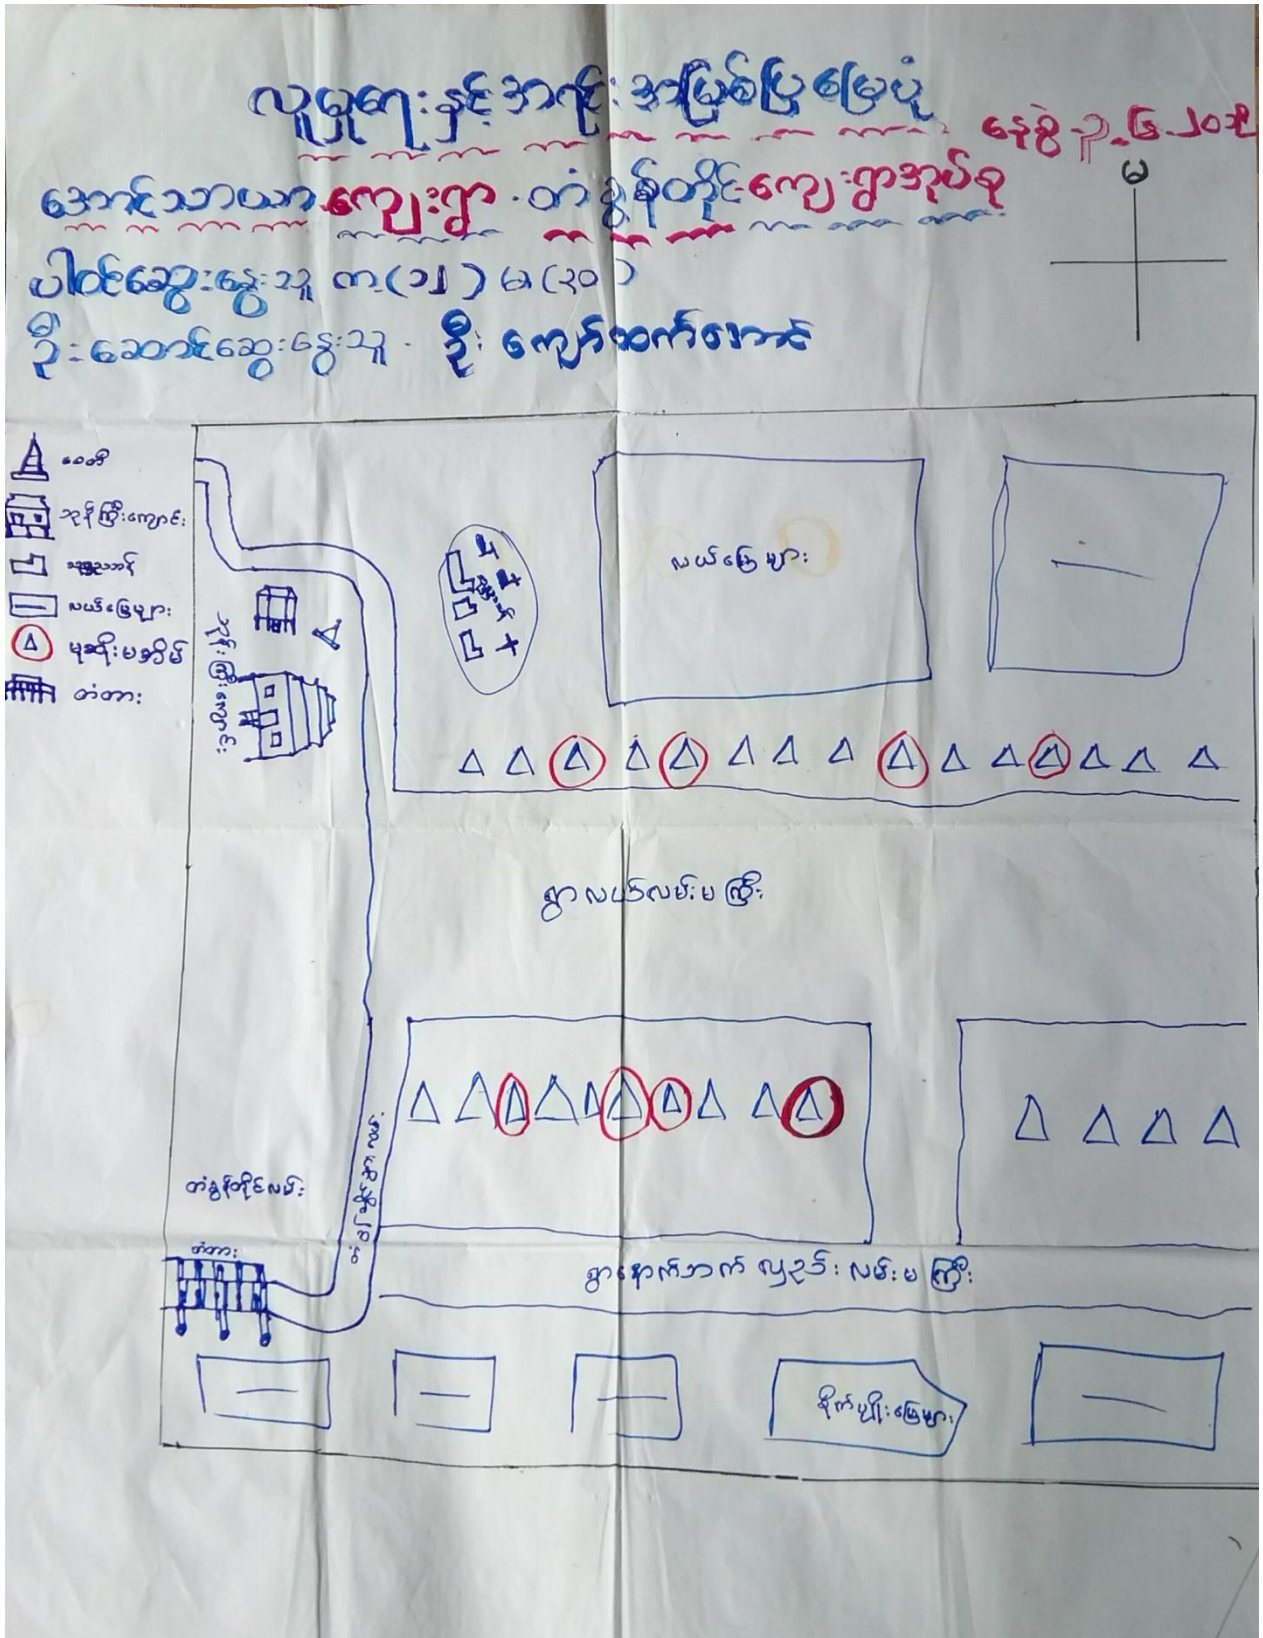 လူမှုရေးနှင့်အရင်းအမြစ်ပြမြေပုံ
နေ့စွဲ
မ
အောင်သာယာကျေးရွာ . တံခွန်တိုင်ကျေးရွာအုပ်စု
ပါဝင်ဆွေးနွေးသူ ကျ(၁၂) မ(၃၀)
ဦးဆောင်ဆွေးနွေးသူ . ဦးကျော်ထက်အောင်
စေတီ
ဘုန်းကြီးကျောင်း
သုဿာန်
လယ်မြေများ
မုဆိုးမအိမ်
တံတား
လယ်မြေများ
ဘုန်းကြီးကျောင်း
ရွာလယ်လမ်းမကြီး
တံခွန်တိုင်လမ်း
တံတား
ရွာနောက်ဘက် လှည်းလမ်းမကြီး
စိုက်ပျိုးမြေများ